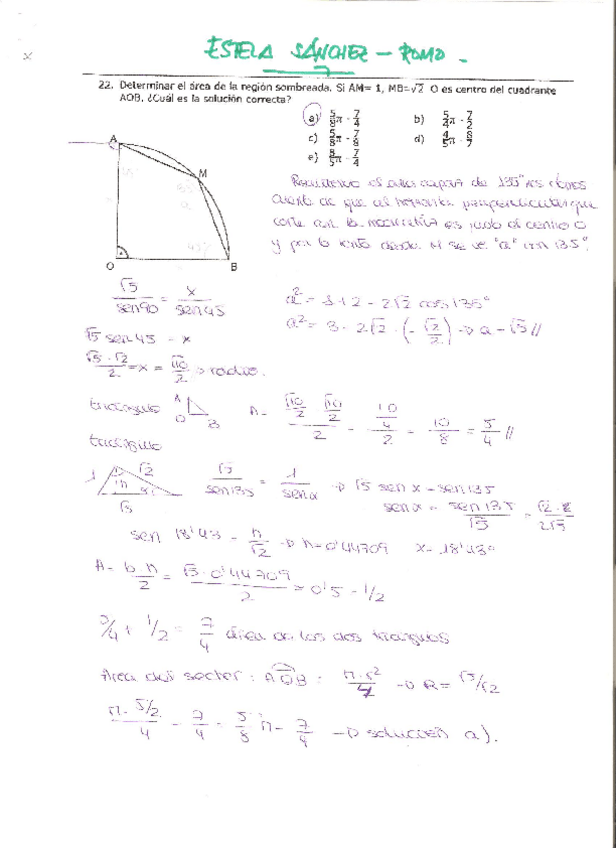 ESTELA SÁNCHEZ - ROMO -
22. Determinar el área de la región sombreada. Si AM= 1, MB=√2 O es centro del cuadrante
AOB. ¿Cuál es la solución correcta?
a) 5/8 π - 7/4 b) 5/4 π - 7/2
c) 5/8 π - 7/8 d) 4/5 π - 8/7
e) 8/5 π - 7/4
A
M
O
B
de 135°
cuenta de que
centro O
y por lo tanto desde M se ve "a" con 135°.
√5/sen90 = x/sen45
a² = 1+2 - 2√2 cos 135°
a² = 3 - 2√2 · (-√2/2) → a = √5 //
√5 sen 45 = x
√5·√2/2 = x = √10/2 → radio.
triángulo A O B
A = (√10/2 · √10/2)/2 = (10/4)/2 = 10/8 = 5/4 //
triángulo
1 √2 h √5
√5/sen135 = 1/senα → √5 sen α = sen 135
sen α = sen 135/√5
sen 18'43 = h/√2 → h = 0'44709 x = 18'43°
A = b·h/2 = √5·0'44709/2 = 0'5 = 1/2
5/4 + 1/2 = 7/4 área de los dos triángulos
Área del sector: AOB : π·r²/4 → R = √5/√2
π·5/2/4 - 7/4 = 5/8 π - 7/4 → solución a).